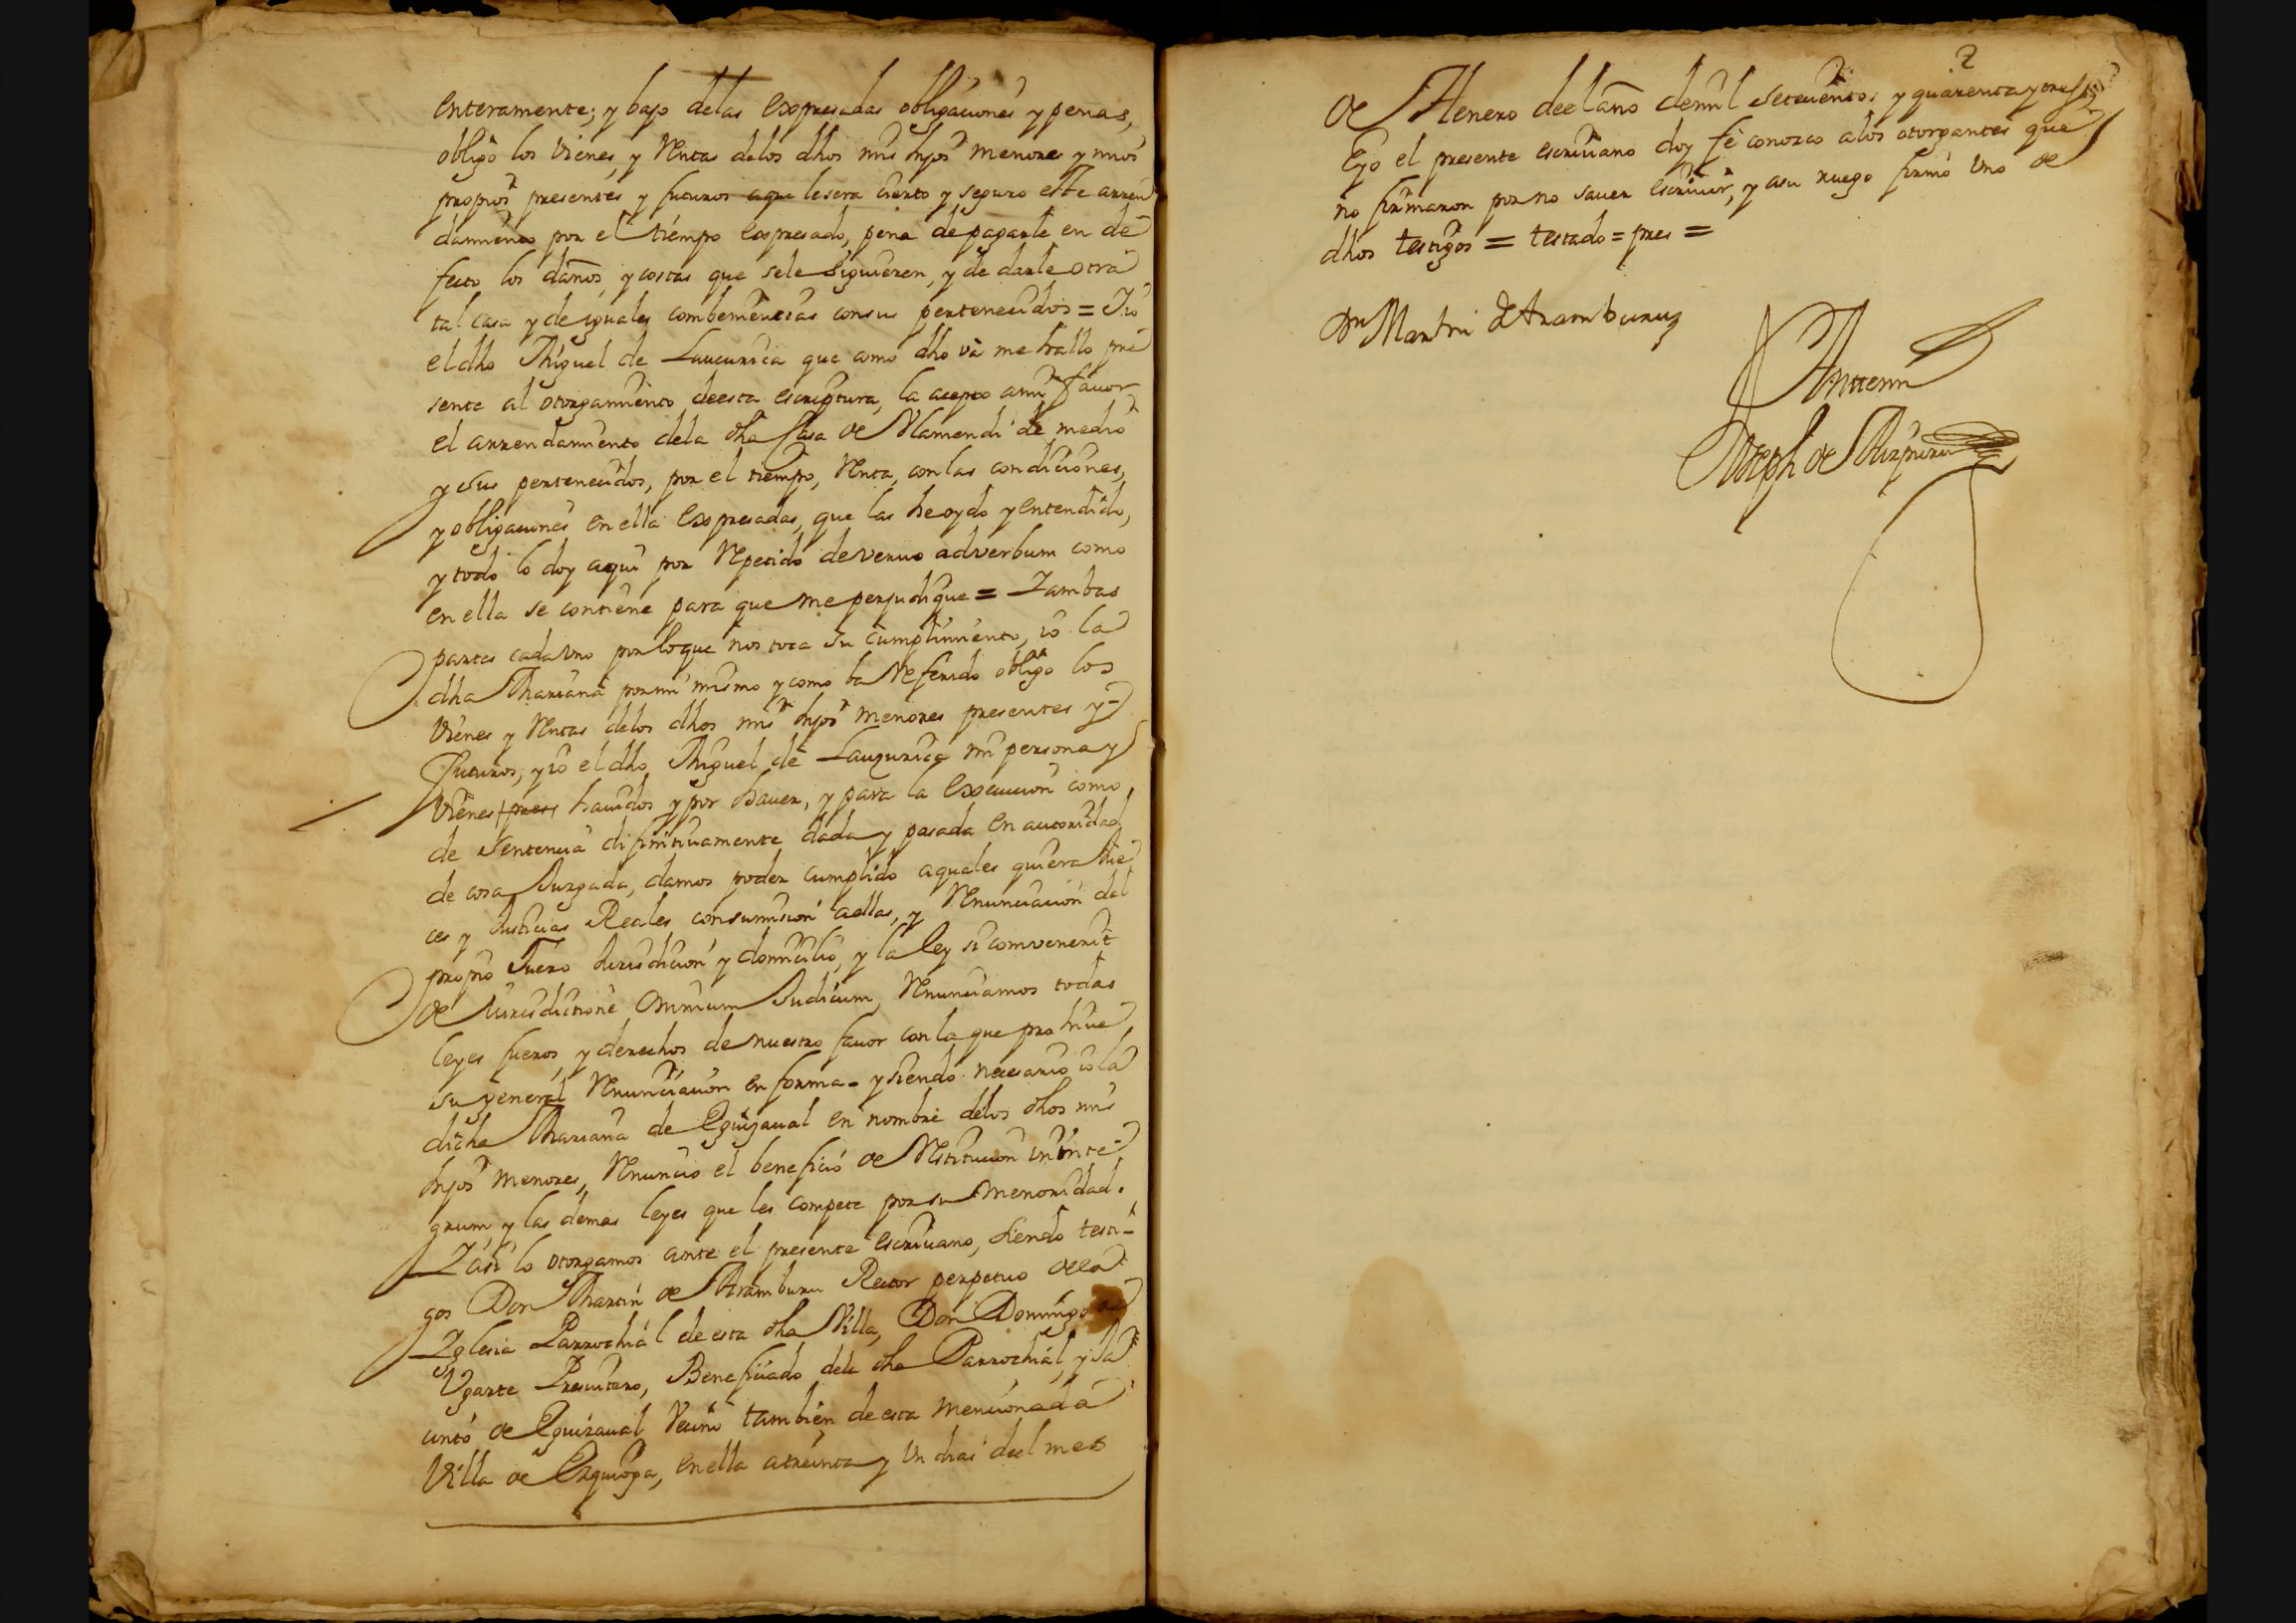 enteramente; y bajo delas expresadas obligaciones y penas,
obligo los vienes, y Rentas delos dhos mis hijos menores y mios
propios presentes y futuros aque lesera cierto y seguro este arren
damiento por el tiempo expresado, pena depagarle en de
fecto los daños, y costas que sele siguieren, y de darle otra
tal casa y de iguales combeniencias consus pertenecidos = Y io
el dho Miguel de Laucurica que como dho va me hallo pre
sente al otorgamiento deesta escriptura, la acepto ami favor
el arrendamiento dela dha Casa de Mamendi de medio
y sus pertenecidos, por el tiempo, Renta, con las condiciones,
y obligaciones en ella expresadas, que las he oydo y entendido,
y todo lo doy aqui por Repetido deveruo adverbum como
en ella se contiene para que me perjudique = Y ambas
partes cada uno por loque nos toca su cumplimiento, io la
dha Mariana por mi mismo y como ba Referido obligo los
vienes y Rentas delos dhos mis hijos menores presentes y
futuros, y io el dho Miguel de Lauzurica mi persona y
vienes pres havidos y por haver, y para la execucion como
de sentencia difinitivamente dada y pasada en autoridad
de cosa Juzgada, damos poder cumplido aquales quiera Jue
ces y Justicias Reales consumision aellas, y Renunciacion del
propio fuero Jurisdicion y domicilio, y la ley si comvenerit
de Jurisdictione omnium Judicum, Renunciamos todas
leyes fueros, y derechos de nuestro favor con la que prohive
su general Renunciacion en forma - y siendo necesario io la
dicha Mariana de Eguizaval en nombre delos dhos mis
hijos menores, Renuncio el beneficio de Restitucion in inte
grum, y las demas leyes que les compete por su menoridad.
Y asi lo otorgamos ante el presente escrivano, siendo testi-
gos Don Martin de Aramburu Rector perpetuo dela
Yglesia Parrochial de esta dha Villa, Don Domingo de
Ugarte Presvitero, Beneficiado dela dha Parrochial, y Ja
cinto de Eguizaval Vecino tambien de esta mencionada
Villa de Ezquioga, en ella atreinta y un dias deel mes
2
de Henero deel año demil setecientos y quarenta y tres
E yo el presente escrivano doy fe conozco alos otorgantes que
no firmaron por no saver escrivir, y asu ruego firmo uno de
dhos testigos = testado = pres =
Dn Martin de Aramburu
Antemi
Joseph de Aizpuru